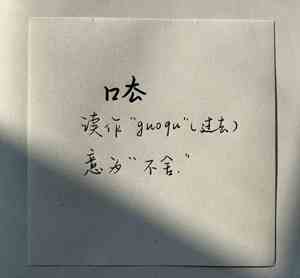 读作"guoqu"(过去)
意为"不舍."